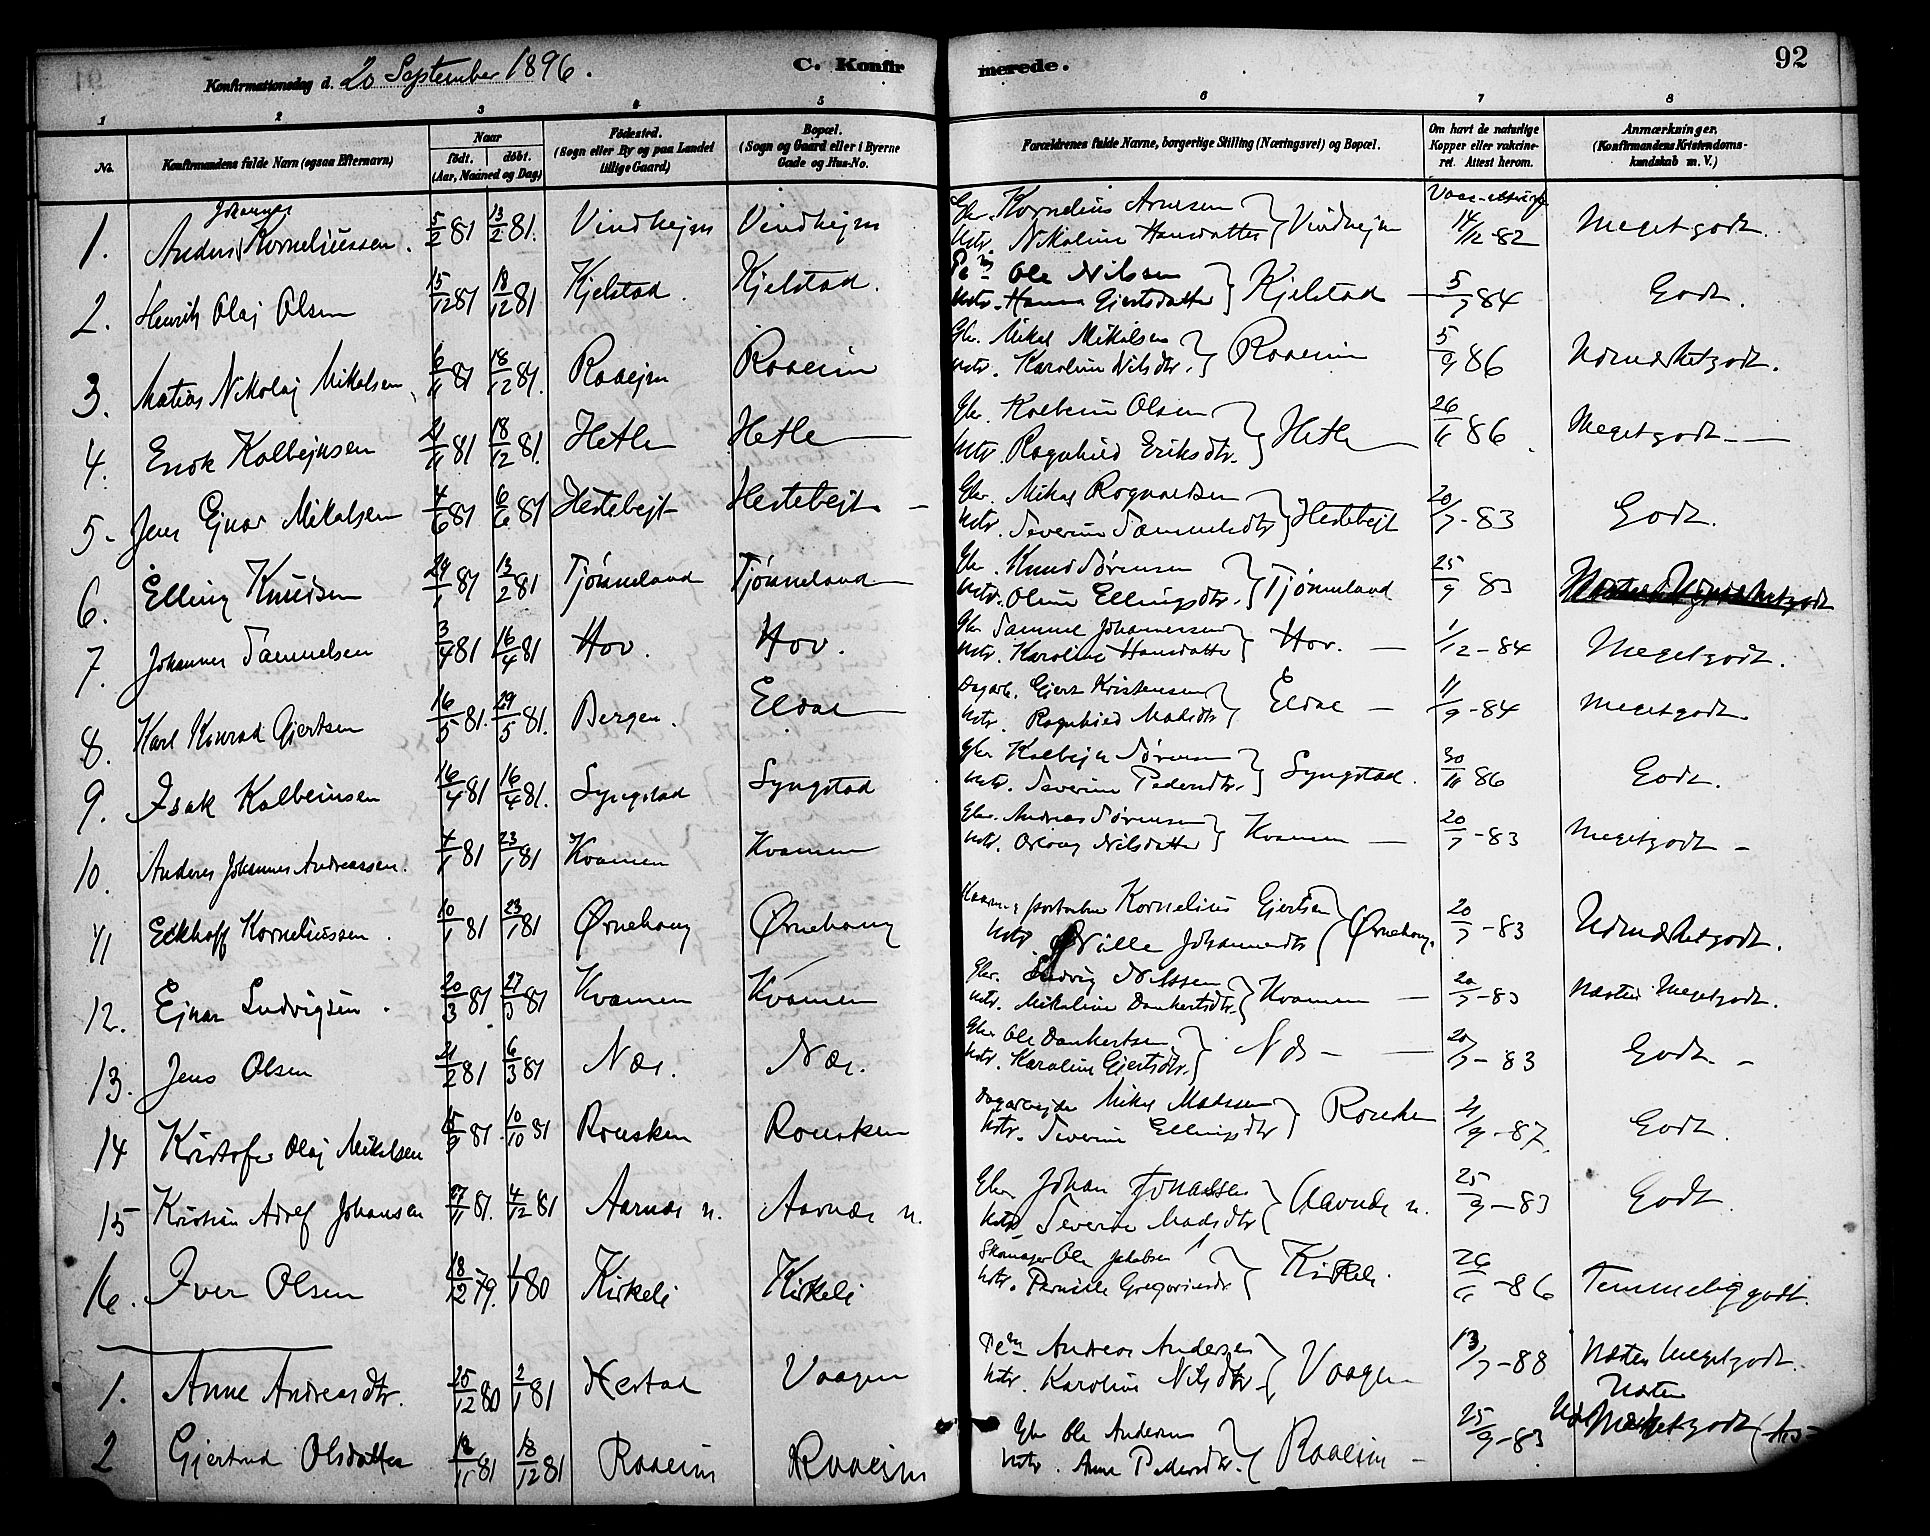 92
Konfirmationsdag d. 20 September 1896. C. Konfirmerede.
1 2 3 4 5 6 7 8
No. Konfirmandens fulde Navn (ogsaa Efternavn) Naar født. døbt. (Aar, Maaned og Dag) Fødested. (Sogn eller By og paa Landet tillige Gaard) Bopæl. (Sogn og Gaard eller i Byerne Gade og Hus-No. Forældrenes fulde Navne, borgerlige Stilling (Næringsvei) og Bopæl. Om havt de naturlige Kopper eller vakcineret. Attest herom. Anmærkninger. (Konfirmandens Kristendomskundskab m. V.)
1. Anders Johannes Korneliussen. 5/2 81 13/2 81. Vindhejm Vindhejm Gbr. Kornelius Arnesen Hstr. Nikoline Hansdatter Vindhejm 14/12-82 Megetgodt.
2. Henrik Olaj Olsen 15/12 81 18/12 81 Kjelstad. Kjelstad. Ole Nilsen Hstr. Hanna Gjertsdatter Kjelstad 5/7 84 Godt.
3. Matias Nikolaj Mikalsen 6/11 81 18/12 81. Raaejm Raaeim Gbr. Mikal Mikalsen Hstr. Karoline Nilsdtr. Raaeim 5/9 86 Udmærketgodt.
4. Enok Kolbejnsen 21/11 81 18/12 81. Hetle Hetle Gbr. Kolbein Olsen Hstr. Ragnhild Eriksdtr. Hetle 26/11 86 Megetgodt
5. Jens Ejnar Mikalsen 4/6 81 6/6 81 Hestebejt Hestebejt Gbr. Mikal Rognaldsen Hstr. Severine Samuelsdtr Hestebejt 20/7-83 Godt.
6. Elling Knudsen 24/1 81 13/2 81 Tjønneland Tjønneland Gbr. Knud Sørensen Hstr. Oline Ellingsdtr. Tjønneland 25/9 83
7. Johannes Samuelsen 3/4 81 16/4 81 Hov. Hov. Gbr Samuel Johannessen Hstr. Karoline Hansdatter Hov. 1/12-84 Megetgodt.
8. Karl Konrad Gjertsen 16/5 81. 29/5 81. Bergen. Eldal Dagarb. Gjert Kristensen Hstr. Ragnhild Madsdtr Eldal 11/9-84 Megetgodt.
9. Isak Kolbeinsen 16/4 81 16/4 81. Syngstad Syngstad Gbr Kolbejn Sørensen Hstr. Severine Pedersdtr. Syngstad. 30/11 86 Godt.
10. Anders Johannes Andreassen. 4/1 81 23/1 81 Kvamen Kvamen Gbr. Andreas Sørensen Hstr. Nilsdatter Kvamen 20/7-83 Megetgodt
11 Eckhoff Korneliussen. 10/1 81 23/1 81 Ørnehaug Ørnehaug Kornelius Gjertsen Hstr Nille Johannesdtr Ørnehaug. 20/7-83 Udmærketgodt.
12. Ejnar Ludvigsen. 20/3 81 27/3 81 Kvamen Kvamen Gbr. Ludvig Nilssen Hstr. Mikaline Dankertsdtr. Kvamen 20/7-83 Næsten Megetgodt.
13. Jens Olsen 21/2 81 6/3 81 Næs. Næs. Gbr Ole Dankertsen Hstr. Karoline Gjertsdtr. Næs 20/7-83 Godt.
14 Kristofer Olaj Mikalsen 15/9 81. 10/10 81 Rousken Rousken Dagarbejder Mikal Madssen Hstr. Severine Ellingsdtr Rousken 21/9-87. Godt.
15 Kristian Adolf Johansen 27/11 81. 4/12 81 Aarnæs n. Aarnæs n. Gbr Johan Jonassen Hstr Severine Madsdtr Aarnæs n. 25/9-83 Godt
16. Iver Olsen 18/12 79. 1/1 80 Kirkeli Kirkeli Skomager Ole Jakobsen Hstr. Pernille Gregoriusdr. Kirkeli. 26/11-86 Temmelig godt.
1. Anne Andreasdtr. 25/12 80 2/1 81 Hestad Vaagen Andreas Andersen Hstr. Karoline Nilsdtr Vaagen 13/7-88 Næsten Megetgodt.
2 Gjertrud Olsdatter 18/11 81 18/12 81 Raaeim Raaejm Gbr Ole Andersen Hstr. Anne Pedersdtr. Raaeim 25/9-83 Næsten Megetgodt